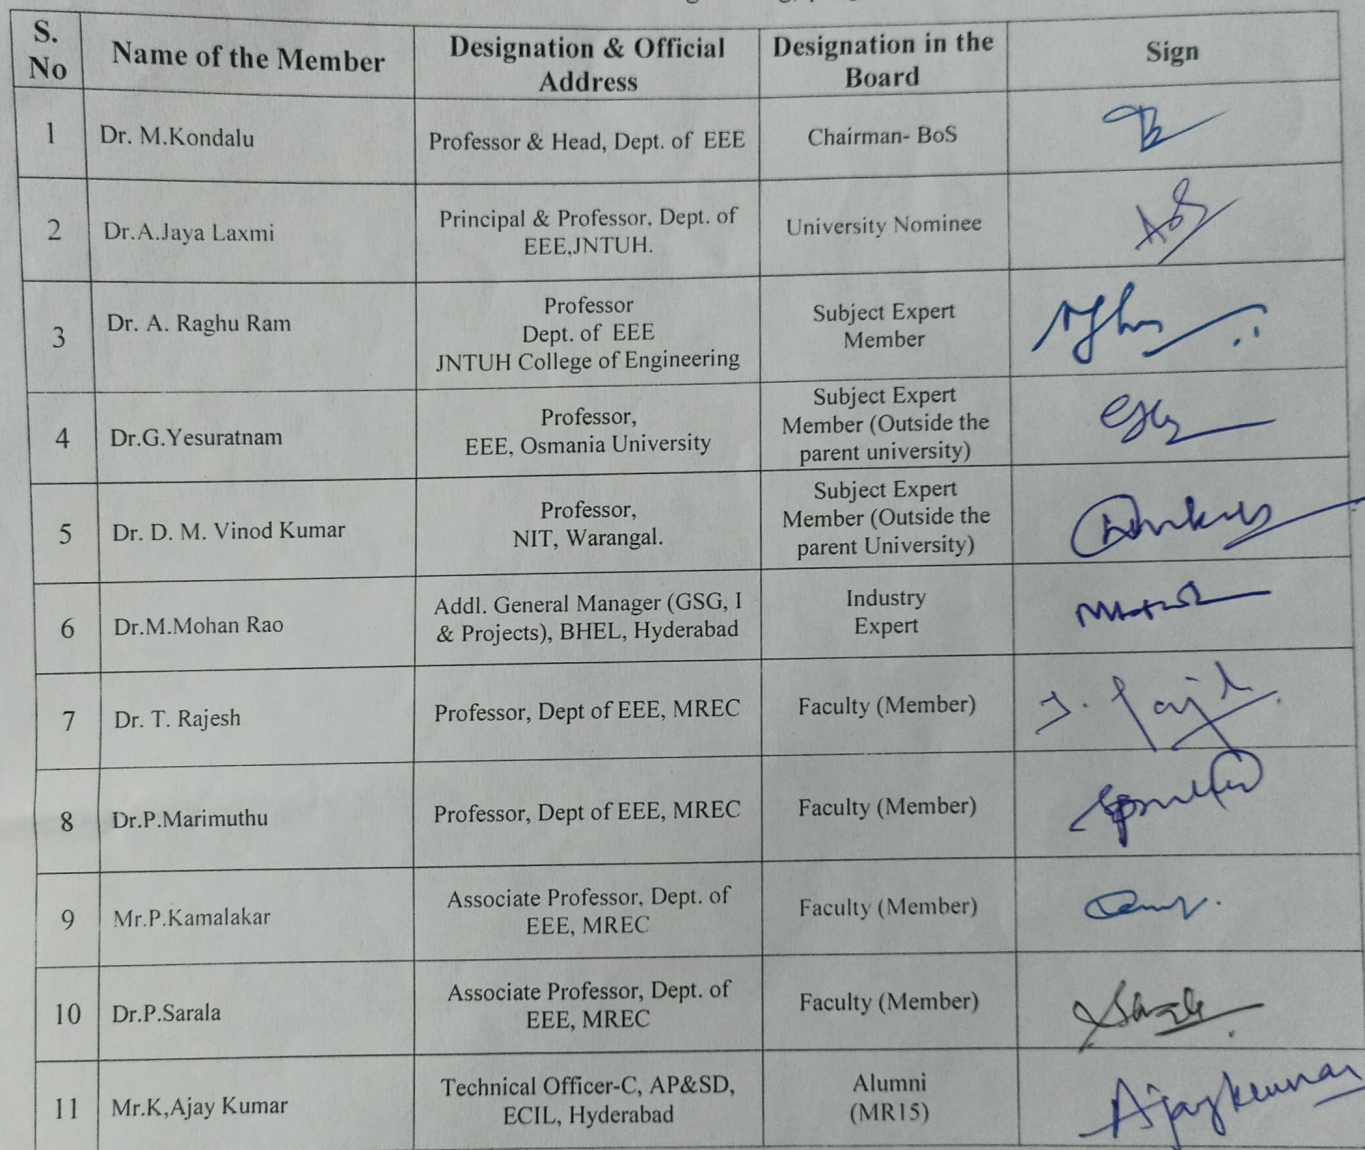 S. No | Name of the Member | Designation & Official Address | Designation in the Board | Sign
1 | Dr. M.Kondalu | Professor & Head, Dept. of EEE | Chairman- BoS
2 | Dr.A.Jaya Laxmi | Principal & Professor, Dept. of EEE,JNTUH. | University Nominee
3 | Dr. A. Raghu Ram | Professor Dept. of EEE JNTUH College of Engineering | Subject Expert Member
4 | Dr.G.Yesuratnam | Professor, EEE, Osmania University | Subject Expert Member (Outside the parent university)
5 | Dr. D. M. Vinod Kumar | Professor, NIT, Warangal. | Subject Expert Member (Outside the parent University)
6 | Dr.M.Mohan Rao | Addl. General Manager (GSG, I & Projects), BHEL, Hyderabad | Industry Expert
7 | Dr. T. Rajesh | Professor, Dept of EEE, MREC | Faculty (Member)
8 | Dr.P.Marimuthu | Professor, Dept of EEE, MREC | Faculty (Member)
9 | Mr.P.Kamalakar | Associate Professor, Dept. of EEE, MREC | Faculty (Member)
10 | Dr.P.Sarala | Associate Professor, Dept. of EEE, MREC | Faculty (Member)
11 | Mr.K,Ajay Kumar | Technical Officer-C, AP&SD, ECIL, Hyderabad | Alumni (MR15) | Ajaykumar